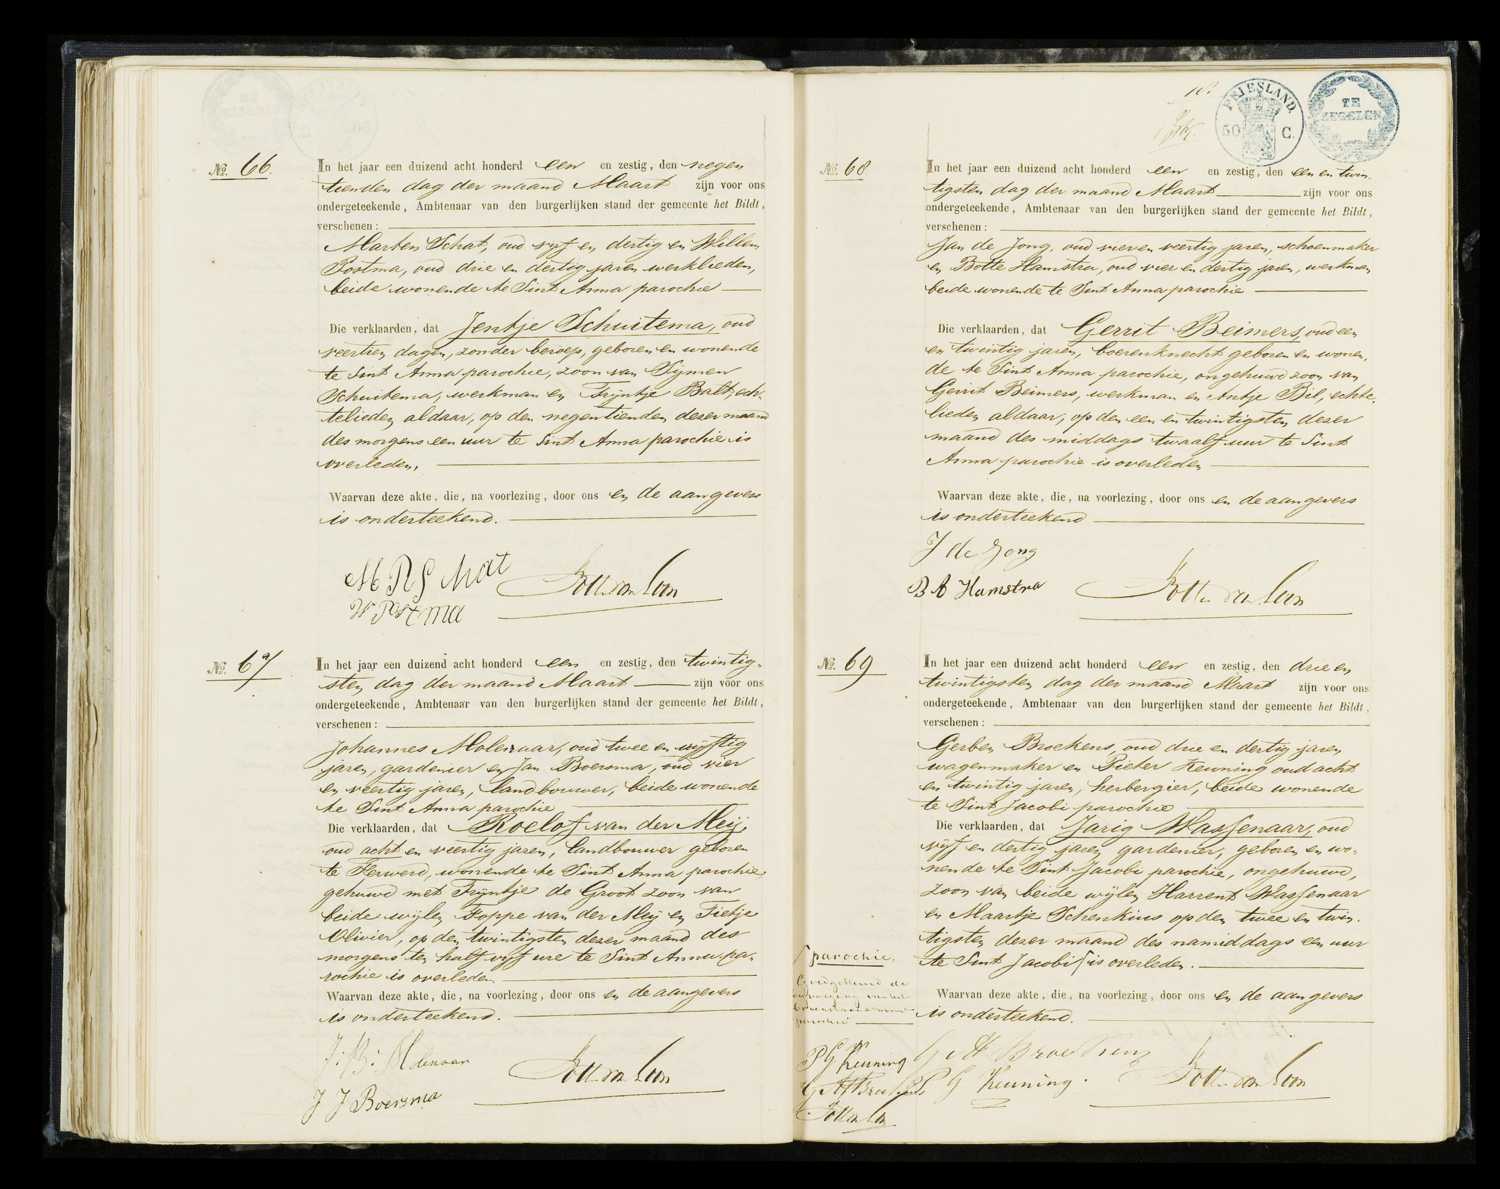 No. 66.
In het jaar een duizend acht honderd een en zestig, den negen
tienden dag der maand Maart zijn voor ons
ondergeteekende, Ambtenaar van den burgerlijken stand der gemeente het Bildt,
verschenen:
Marten Schat, oud vyf en dertig en Willem
Postma, oud drie en dertig jaren werklieden,
beide wonende te Sint Anna parochie
Die verklaarden, dat Jentje Schuitema, oud
veertien dagen, zonder beroep, geboren en wonende
te Sint Anna parochie, zoon van Symen
Schuitema, werkman en Tryntje Balt, ech-
telieden aldaar, op den negentienden dezer maand
des morgens een uur te Sint Anna parochie is
overleden.
Waarvan deze akte, die, na voorlezing, door ons en de aangevers
is onderteekend.
W Postma
No. 67
In het jaar een duizend acht honderd een en zestig, den twintig-
sten dag der maand Maart zijn voor ons
ondergeteekende, Ambtenaar van den burgerlijken stand der gemeente het Bildt,
verschenen:
Johannes Molenaar, oud twee en vyftig
jaren, gardenier en Jan Boersma, oud vier
en veertig jaren, landbouwer, beide wonende
te Sint Anna parochie
Die verklaarden, dat Roelof van der Meij,
oud acht en veertig jaren, landbouwer geboren
te Ferwerd, wonende te Sint Anna parochie
gehuwd met Tryntje de Groot zoon van
beide wijlen Foppe van der Meij en Tietje
Olivier, op den twintigsten dezer maand des
morgens ten half vyf ure te Sint Anna pa-
rochie is overleden.
Waarvan deze akte, die, na voorlezing, door ons en de aangevers
is onderteekend.
J J Boersma
FRIESLAND
50 C.
TE
ZEGELEN
No. 68
In het jaar een duizend acht honderd een en zestig, den een en twin
tigsten dag der maand Maart zijn voor ons
ondergeteekende, Ambtenaar van den burgerlijken stand der gemeente het Bildt,
verschenen:
Jan de Jong, oud vier en veertig jaren, schoenmaker
en Botte Hamstra, oud vier en dertig jaren, werkman
beide wonende te Sint Anna parochie
Die verklaarden, dat Gerrit Beimers, oud een
en twintig jaren, boerenknecht geboren en wonen,
de te Sint Anna parochie, ongehuwd zoon van
Gerrit Beimers, werkman en Antje Bil, echte-
lieden aldaar, op den een en twintigsten dezer
maand des middags twaalf uur te Sint
Anna parochie is overleden
Waarvan deze akte, die, na voorlezing, door ons en de aangevers
is onderteekend
J de Jong
B A Hamstra
No. 69
In het jaar een duizend acht honderd een en zestig, den drie en
twintigsten dag der maand Maart zijn voor ons
ondergeteekende, Ambtenaar van den burgerlijken stand der gemeente het Bildt,
verschenen:
Gerben Broekens, oud drie en dertig jaren
wagenmaker en Pieter Keuning oud acht
en twintig jaren, herbergier, beide wonende
te Sint Jacobi parochie
Die verklaarden, dat Jarig Wassenaar, oud
vyf en dertig jaren gardenier, geboren en wo-
nende te Sint Jacobi parochie, ongehuwd,
zoon van beide wijlen Harrent Wassenaar
en Maartje Schenkius op den twee en twin-
tigsten dezer maand des namiddags een uur
te Sint Jacobi is overleden.
Waarvan deze akte, die, na voorlezing, door ons en de aangevers
is onderteekend.
parochie,
P G Keuning
P G Keuning.